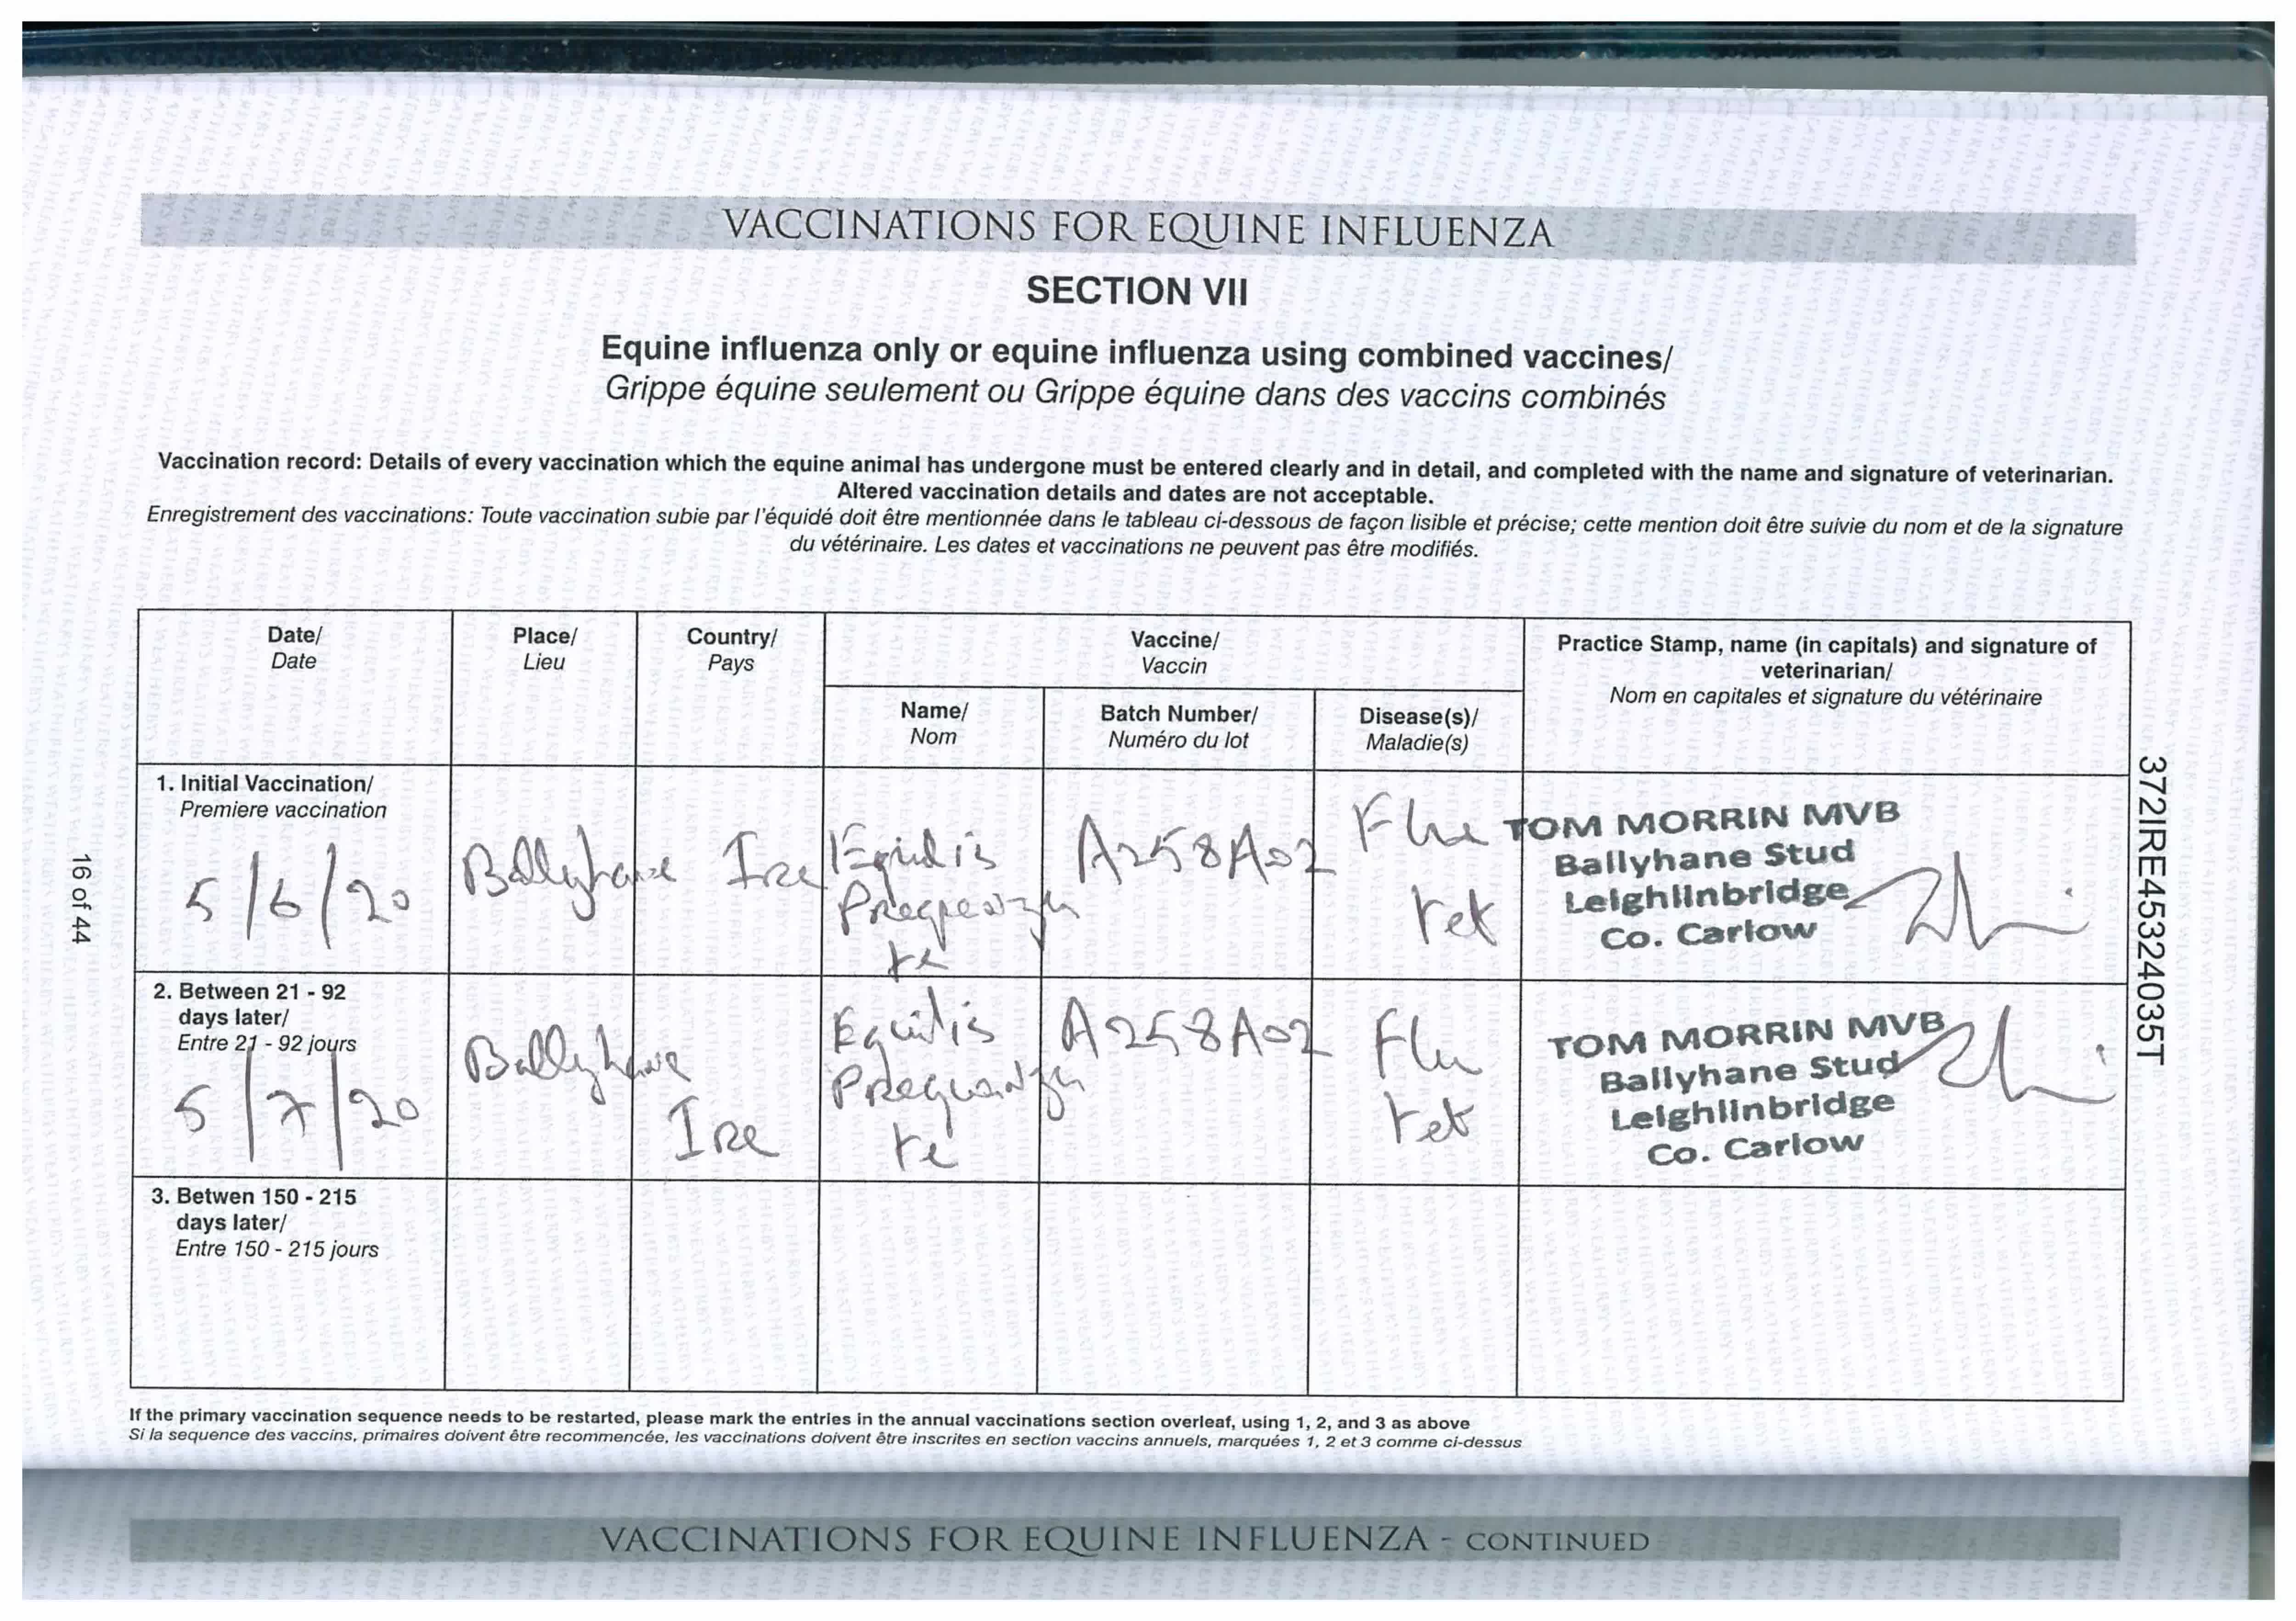 VACCINATIONS FOR EQUINE INFLUENZA
SECTION VII
Equine influenza only or equine influenza using combined vaccines/
Grippe équine seulement ou Grippe équine dans des vaccins combinés
Vaccination record: Details of every vaccination which the equine animal has undergone must be entered clearly and in detail, and completed with the name and signature of veterinarian.
Altered vaccination details and dates are not acceptable.
Enregistrement des vaccinations: Toute vaccination subie par l'équidé doit être mentionnée dans le tableau ci-dessous de façon lisible et précise; cette mention doit être suivie du nom et de la signature
du vétérinaire. Les dates et vaccinations ne peuvent pas être modifiés.
Date/
Date
Place/
Lieu
Country/
Pays
Vaccine/
Vaccin
Practice Stamp, name (in capitals) and signature of
veterinarian/
Nom en capitales et signature du vétérinaire
Name/
Nom
Batch Number/
Numéro du lot
Disease(s)/
Maladie(s)
1. Initial Vaccination/
Premiere vaccination
5/6/20
Ballyhane
Ire
Equilis
te
A258A02
Flu
tet
TOM MORRIN MVB
Ballyhane Stud
Leighlinbridge
Co. Carlow
2. Between 21 - 92
days later/
Entre 21 - 92 jours
5/7/20
Ballyhane
Ire
Equilis
te
A258A02
Flu
tet
TOM MORRIN MVB
Ballyhane Stud
Leighlinbridge
Co. Carlow
3. Betwen 150 - 215
days later/
Entre 150 - 215 jours
If the primary vaccination sequence needs to be restarted, please mark the entries in the annual vaccinations section overleaf, using 1, 2, and 3 as above
Si la sequence des vaccins, primaires doivent être recommencée, les vaccinations doivent être inscrites en section vaccins annuels, marquées 1, 2 et 3 comme ci-dessus
16 of 44
372IRE45324035T
VACCINATIONS FOR EQUINE INFLUENZA - CONTINUED